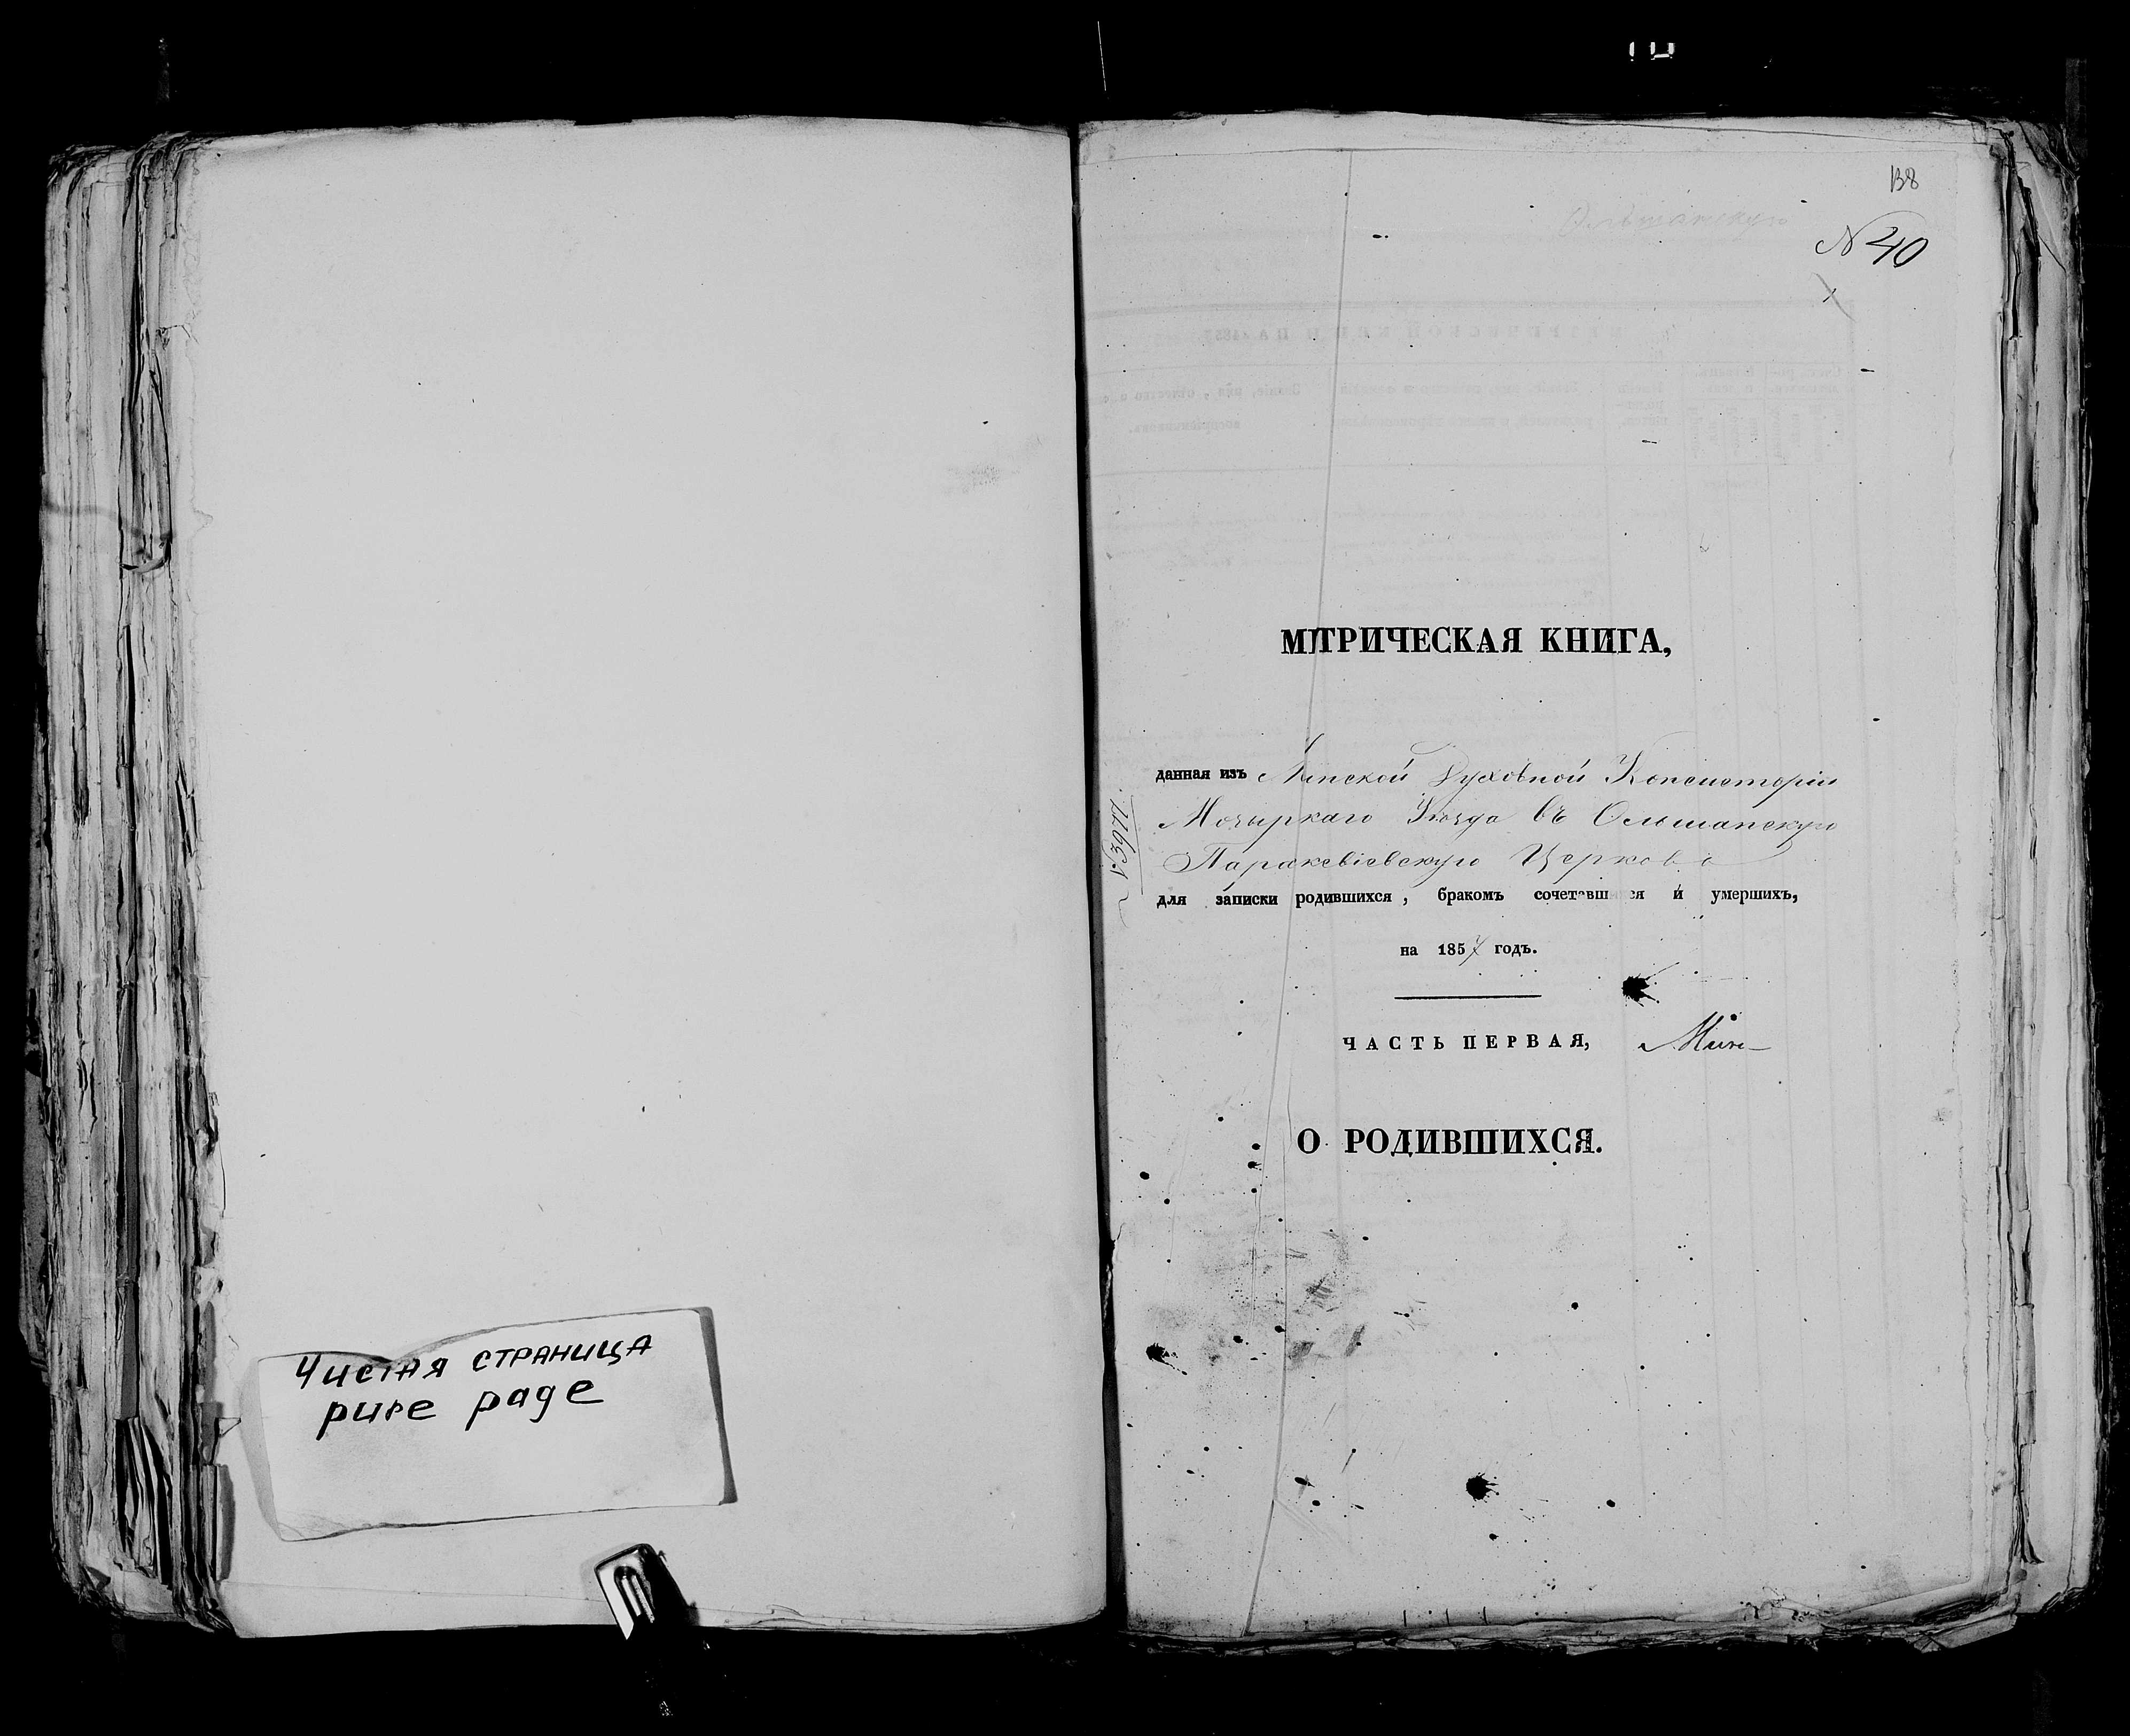 Чистая страница
pure page
138
Ольшанскую
N 40
МТРИЧЕСКАЯ КНИГА,
данная изъ Минской Духовной Консисторіи
Мозыркаго Уѣзда въ Ольшанскую
Параскевіевскую Церковь
для записки родившихся, бракомъ сочетавшихся и умершихъ,
на 1857 годъ.
ЧАСТЬ ПЕРВАЯ,
О РОДИВШИХСЯ.
№ 3977.